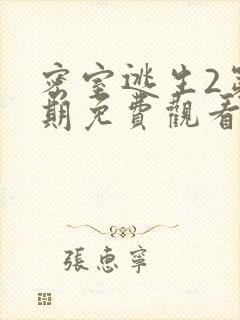 密室逃生2第
期免費觀看
張惠寧